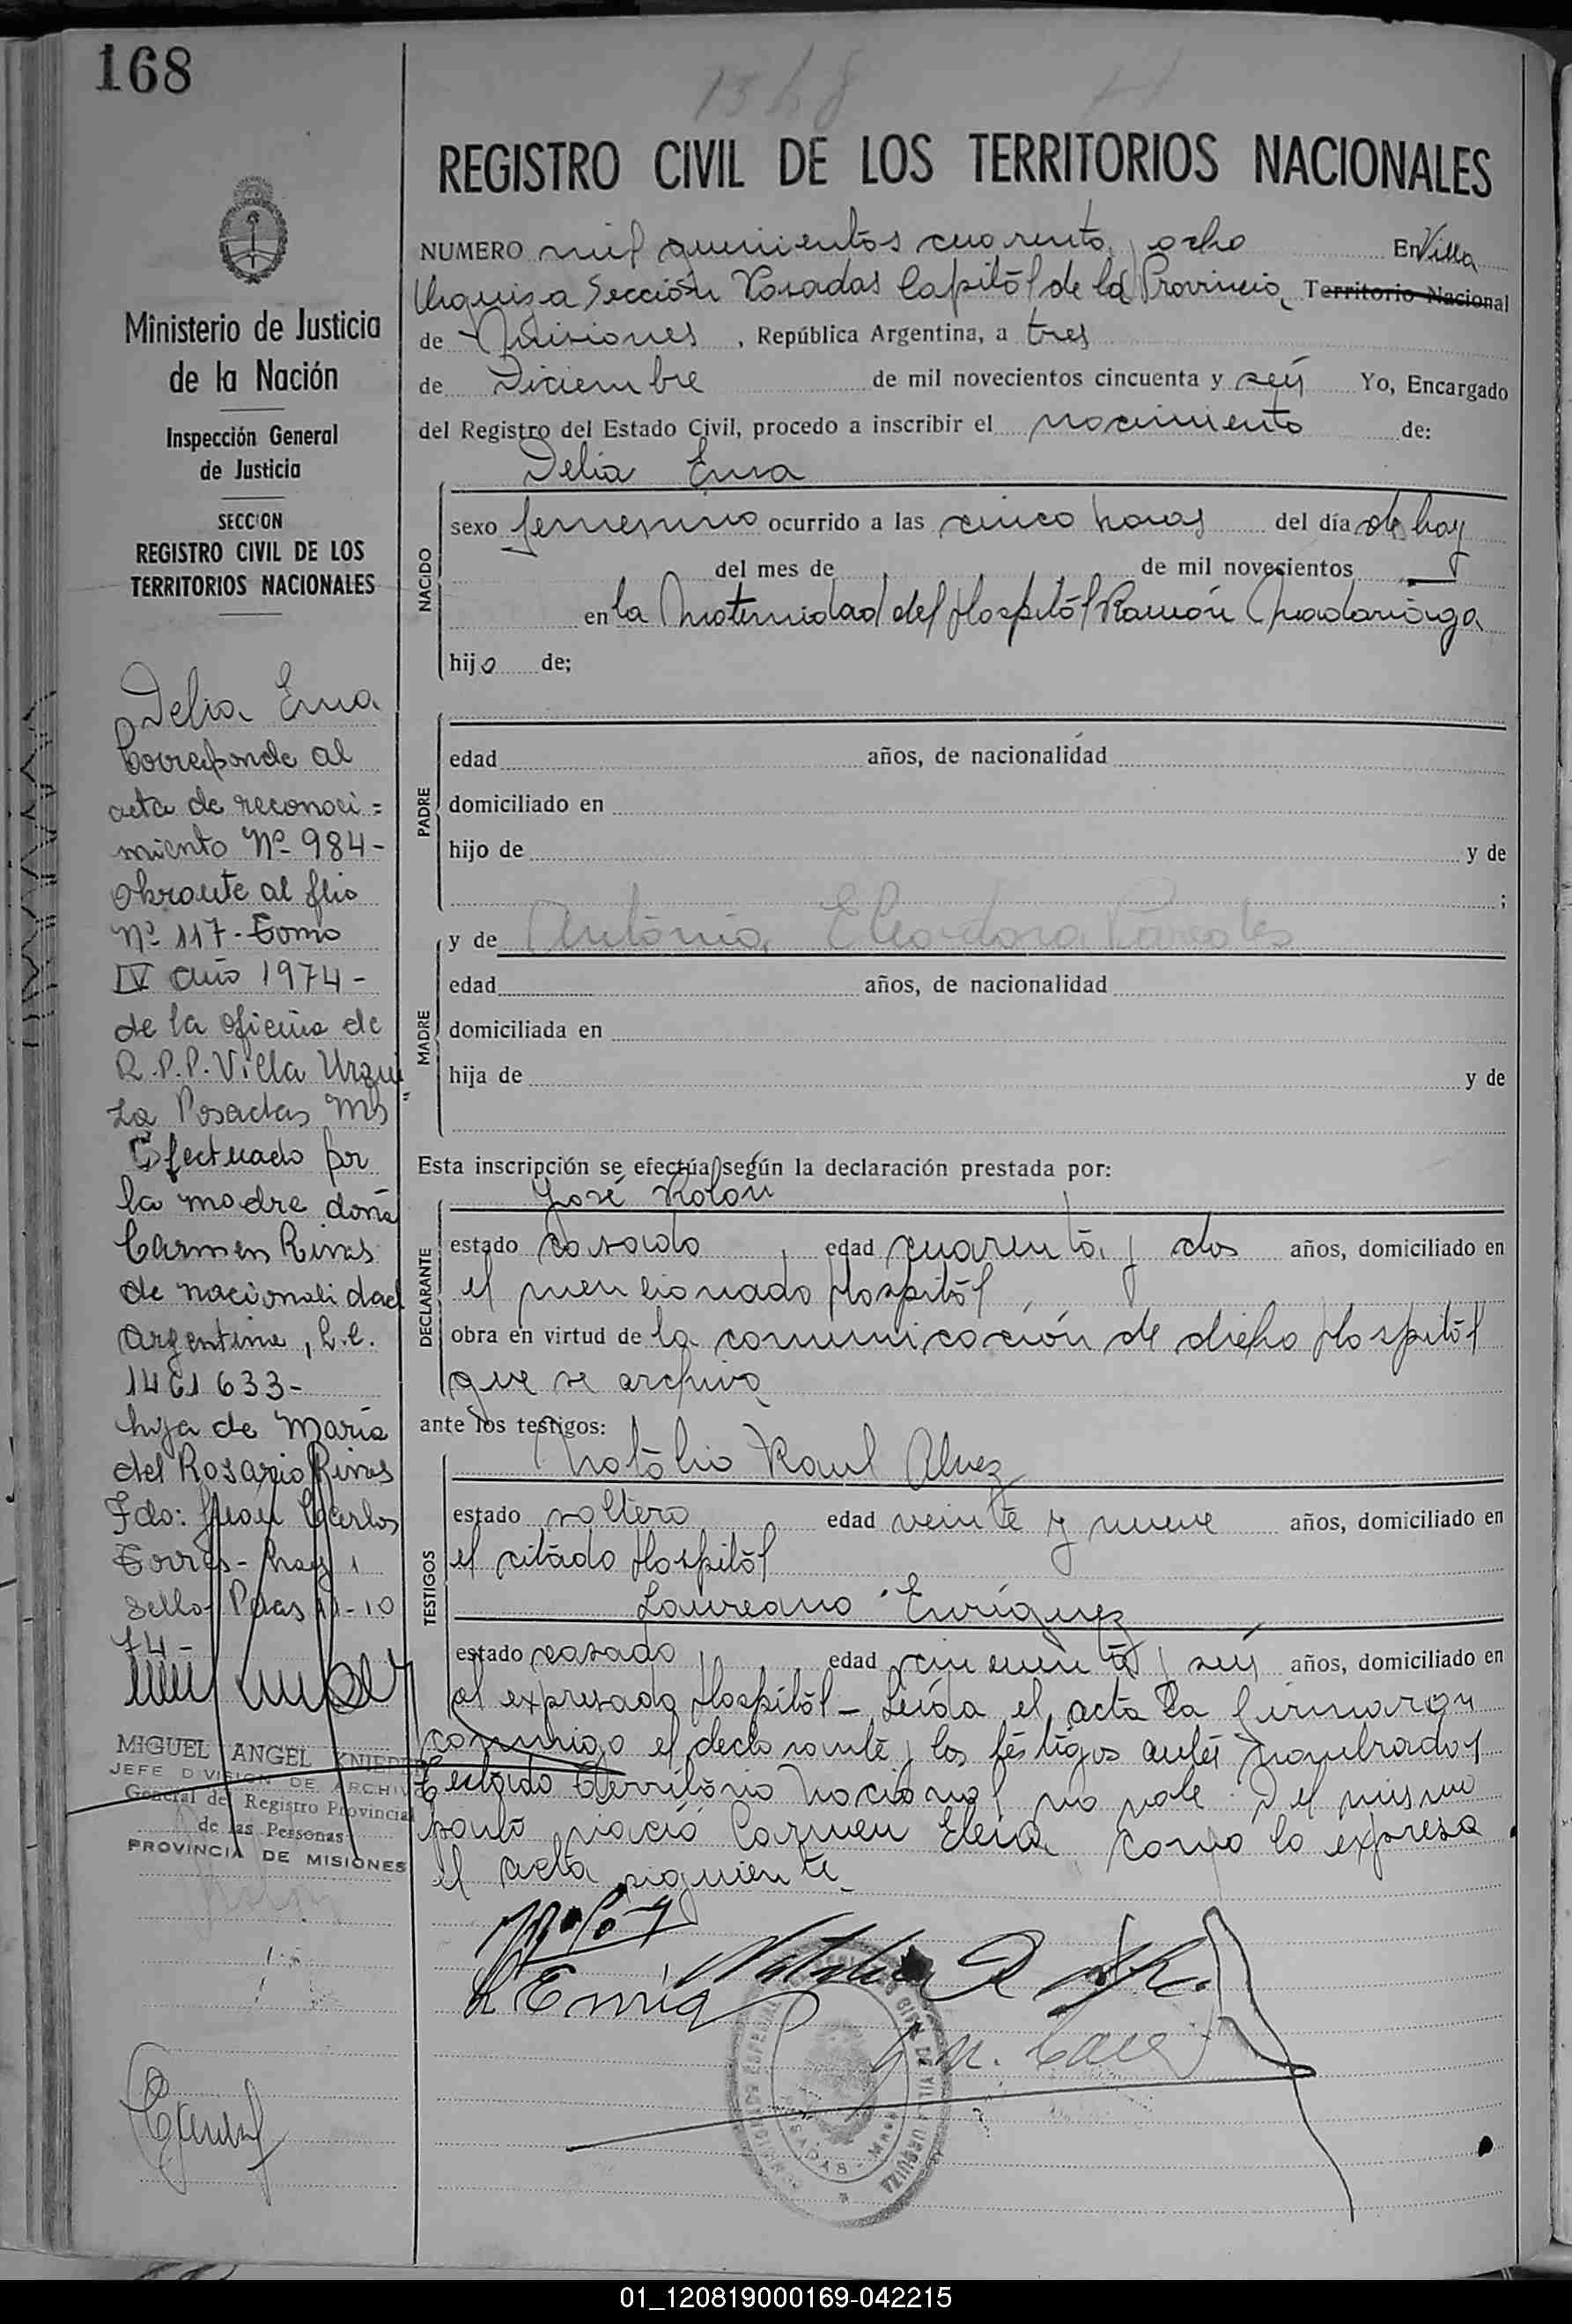 168
1548
REGISTRO CIVIL DE LOS TERRITORIOS NACIONALES
NUMERO mil quinientos cuarenta y ocho En Villa
Urquiza Sección Posadas Capital de la Provincia Territorio Nacional
de Misiones, República Argentina, a tres
de Diciembre de mil novecientos cincuenta y seis Yo, Encargado
del Registro del Estado Civil, procedo a inscribir el nacimiento de:
Delia Ema
NACIDO
sexo femenino ocurrido a las cinco horas del día de hoy
del mes de de mil novecientos
en la Maternidad del Hospital Ramón Madariaga
hijo de;
PADRE
edad años, de nacionalidad
domiciliado en
hijo de y de
;
MADRE
y de Antonia Eleodora
edad años, de nacionalidad
domiciliada en
hija de y de
Esta inscripción se efectúa según la declaración prestada por:
José Rolón
DECLARANTE
estado casado, edad cuarenta y dos años, domiciliado en
el mencionado Hospital
obra en virtud de la comunicación de dicho Hospital
que se archiva
ante los testigos:
Natalio Raul Alvez
TESTIGOS
estado soltero edad veinte y nueve años, domiciliado en
el citado Hospital
Laureano Enriquez
estado casado edad cincuenta y seis años, domiciliado en
el expresado Hospital - Leída el acta la firmaron
conmigo el declarante y los testigos antes nombrados
Testado Territorio Nacional no vale. Del mismo
parto nació Carmen Elena como lo expresa
el acta siguiente.
L Enriq
Ministerio de Justicia
de la Nación
Inspección General
de Justicia
SECCION
REGISTRO CIVIL DE LOS
TERRITORIOS NACIONALES
Delia Ema
Corresponde al
acta de reconoci=
miento Nº 984-
obrante al flio
Nº 117- Tomo
IV año 1974-
de la oficina de
R.P.P. Villa Urqui
za Posadas Ms
Efectuado por
la madre doña
Carmen Rivas
de nacionalidad
Argentina, L.C.
1461633-
hija de María
del Rosario Rivas
Fdo: Juan Carlos
Torres- hay 1
sello- Pdas 11-10
74-
MIGUEL ANGEL
JEFE DIVISION DE ARCHIVO
General del Registro Provincial
de las Personas
PROVINCIA DE MISIONES
01_120819000169-042215